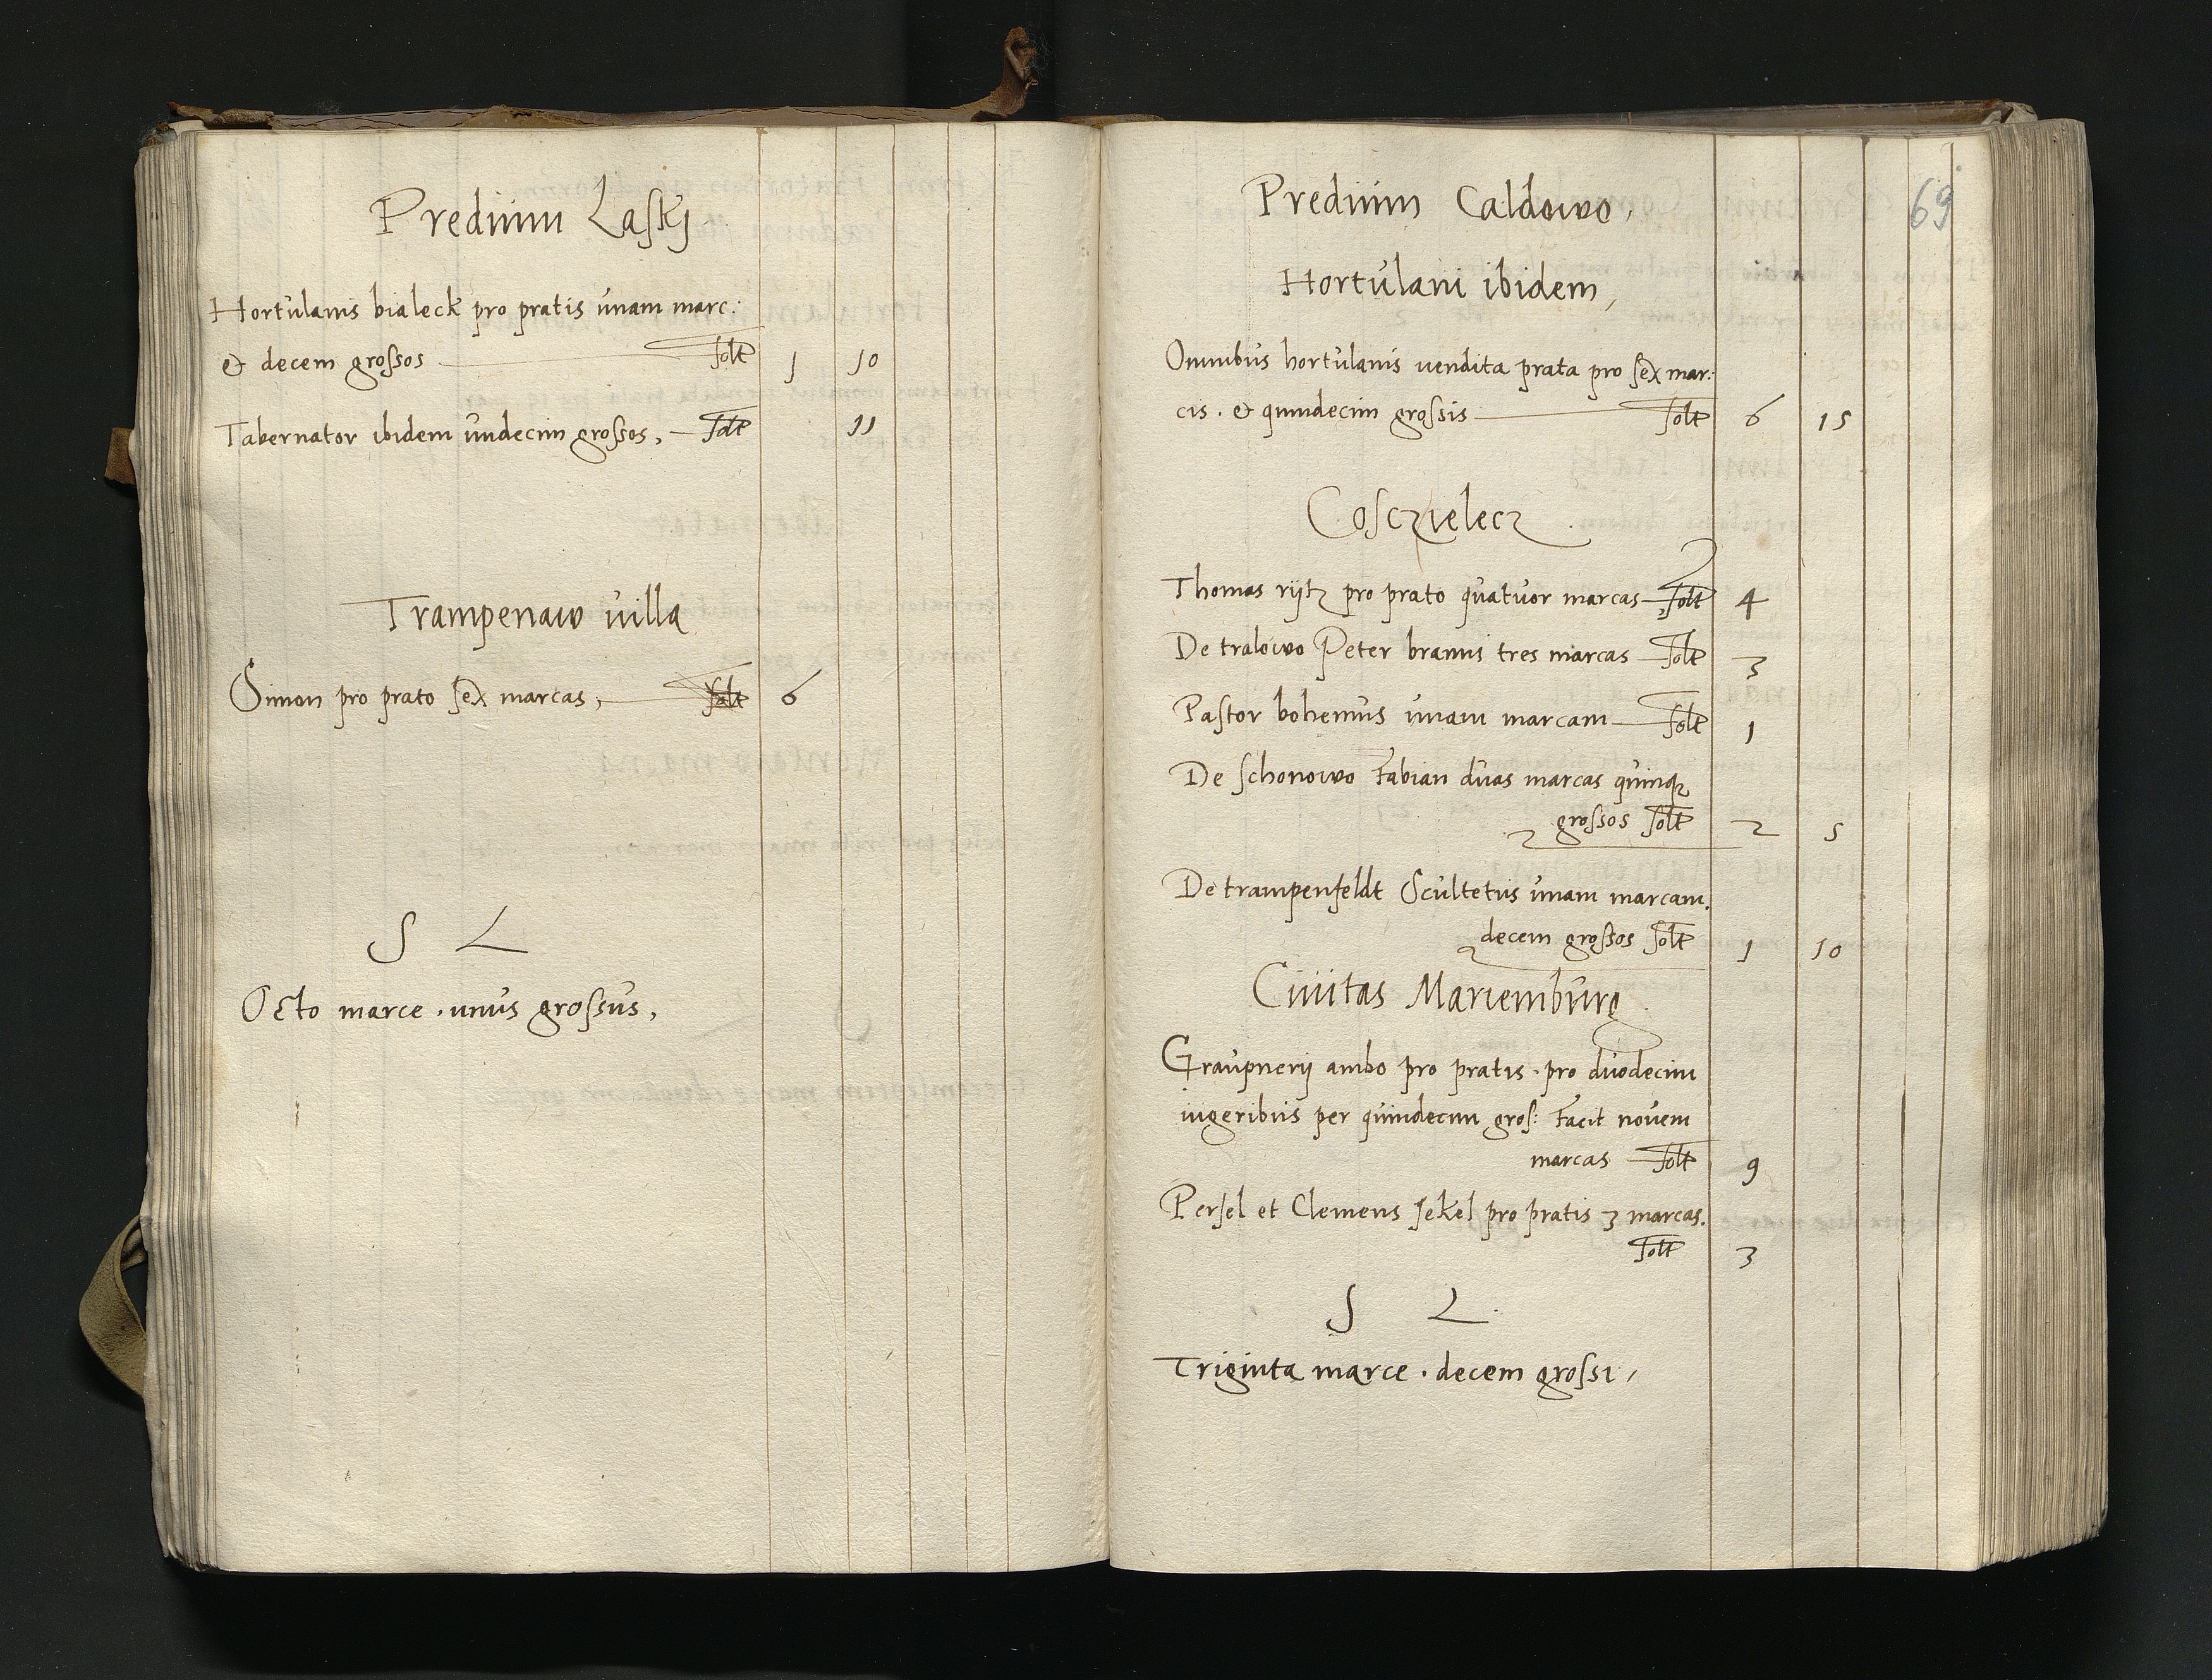 Predium Lasky
Hortulanis bialeck pro pratis unam marc:
et decem grossos solt 1 10
Tabernator ibidem undecim grossos, solt 11
Trampenaw villa
Simon pro prato sex marcas, solt 6
S L
Octo marce . unus grossus,
69
Predium Caldowo,
Hortulani ibidem,
Omnibus hortulanis vendita prata pro sex mar:
cis . et quindecim grossis solt 6 15
Cosczielecz .
Thomas rijtz pro prato quatuor marcas solt 4
De tralowo Peter brams tres marcas solt 3
Pastor bohemus unam marcam solt 1
De schonowo Fabian duas marcas quinq
grossos solt 2 5
De trampenfeldt Scultetus unam marcam.
decem grossos solt 1 10
Civitas Mariemburg
Graupnerij ambo pro pratis . pro duodecim
iugeribus per quindecim gros: facit novem
marcas solt 9
Persel et Clemens Jekel pro pratis 3 marcas.
solt 3
S L.
Triginta marce . decem grossi,